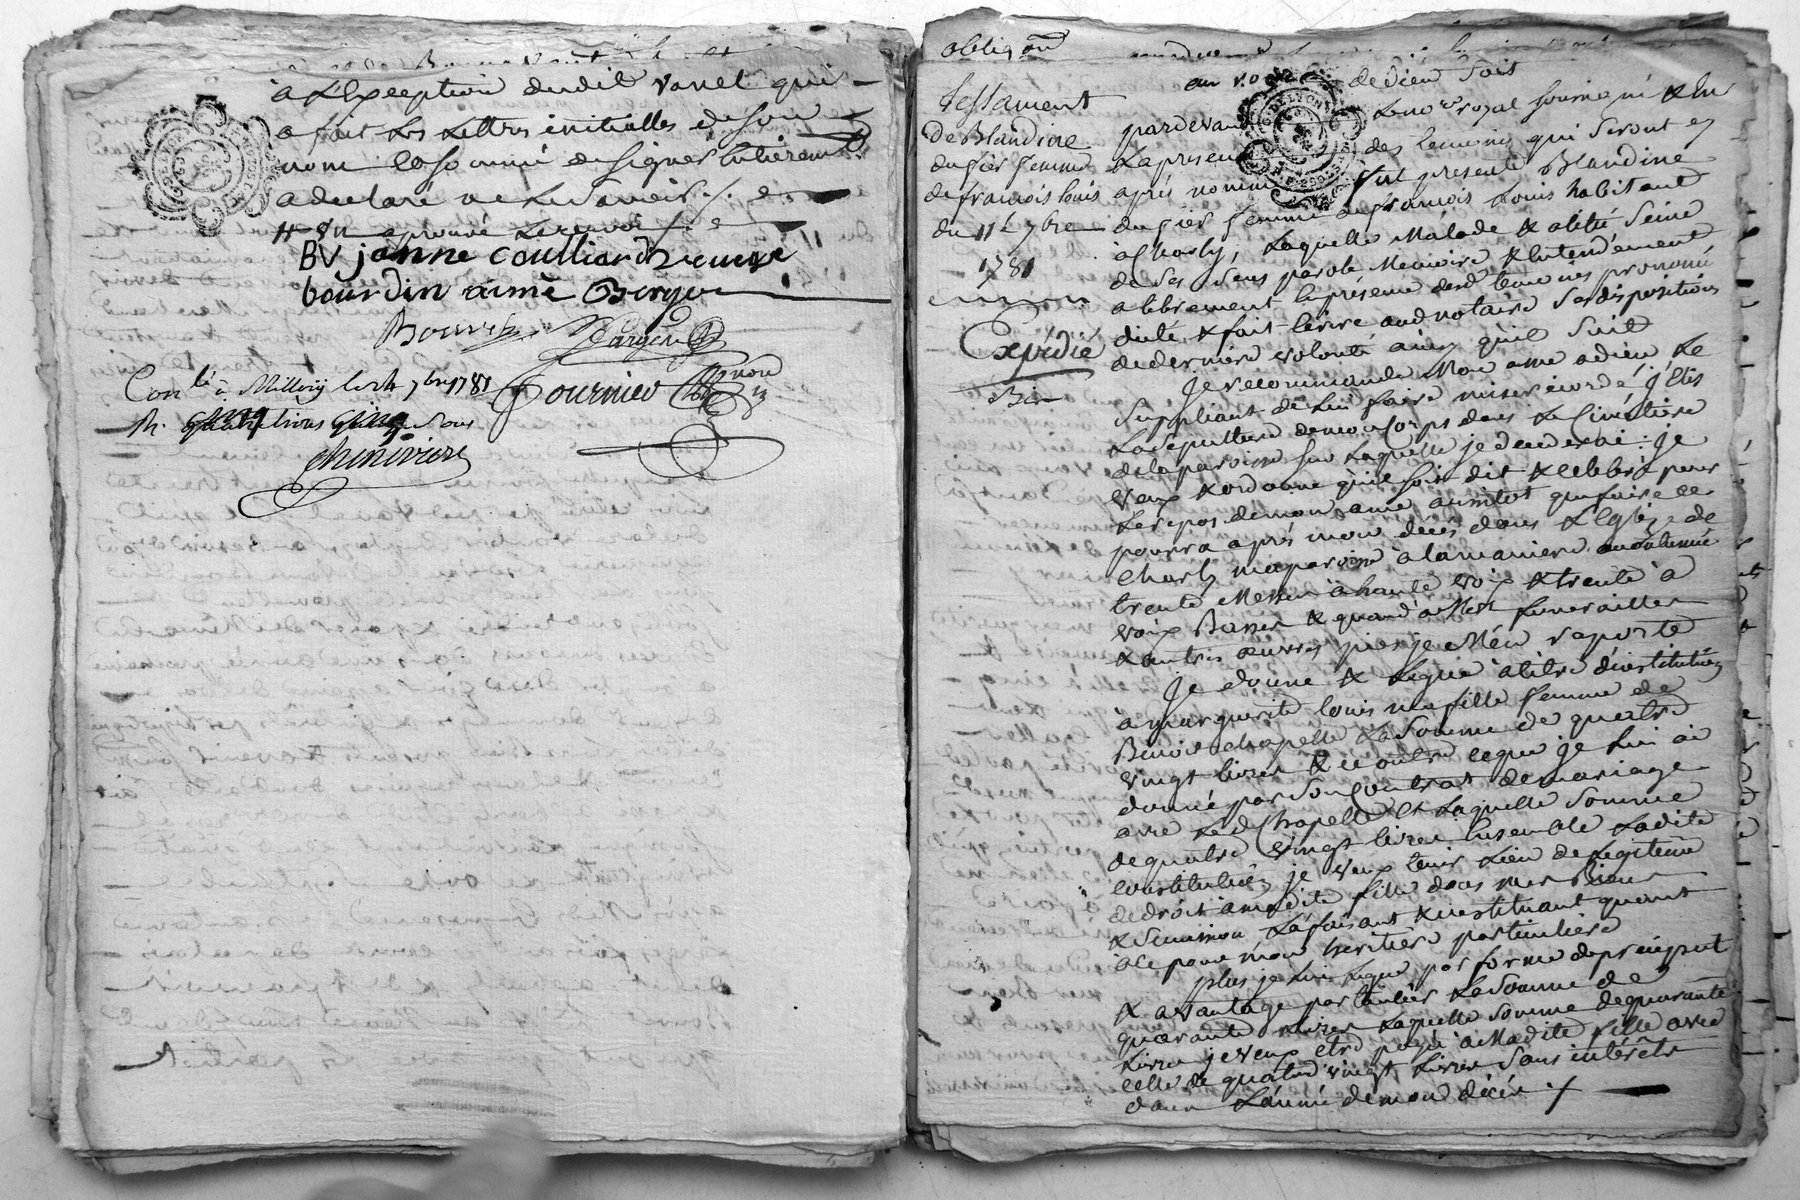 à L'Exception dudit Vanel qui
a fait Les Lettres initialles de son
nom Et a sommé de signer Entièremt
a declaré ne Le Savoir ./.
BV janne couilliard
bourdin aimé Berger
Bourdin
Fournier
Conlé à Millery Le 7bre 1781
R. quatre livres cinq sous
Chinivière
obligaon
au nom de Dieu Soit
Testament
De Blandine
dugier femme
de françois louis
du 11e 7bre
1781
Expédié
pardevant Le nore royal soussigné & En
La presence des temoins qui seront cy
après nommés fut presente Blandine
dugier femme de françois Louis habitant
à Charly, Laquelle Malade & alitée Saine
de Ses Sens parole Memoire & Entendement
a librement En présence desd temoins prononcé
dicté & fait Ecrire aud notaire Ses dispositions
de derniere volonté ainsy qu'il Suit
Je recommande Mon ame a dieu Le
Suppliant de Lui faire misericorde, j'Elis
La Sepulture de mon Corps dans Le Cimetiere
de la paroisse Sur Laquelle je decederai : je
veux & ordonne qu'il soit dit & celebré pour
Le repos de mon ame aussitot que faire Se
pourra après mon décès dans L'Eglize de
Charly ma paroisse à la maniere accoutumée
trente Messes à haute voix & trente à
voix Basses & quand a Mes funerailles
& autres œuvres pies je M'en raporte
Je donne & Legue à titre d'institution
à Marguerite Louis ma fille femme de
Benoit chapelle La Somme de quatre
vingt livres & ce outre ce que je Lui ai
donné par Son Contrat de mariage
avec Led Chapelle Et Laquelle Somme
de quatre vingt livres Ensemble Ladite
Constitution je veux tenir Lieu de Legitime
de droit à madite fille dans mes Biens
& Succession La faisant & instituant quant
à ce pour mon heritiere particuliere
plus je Lui Legue par forme de preciput
& avantage particulier La Somme de
quarante Livres Laquelle Somme de quarante
Livres je veux etre payé à Madite fille avec
celle de quatre vingt Livres Sans intérêts
dans L'année de mon décès ./.